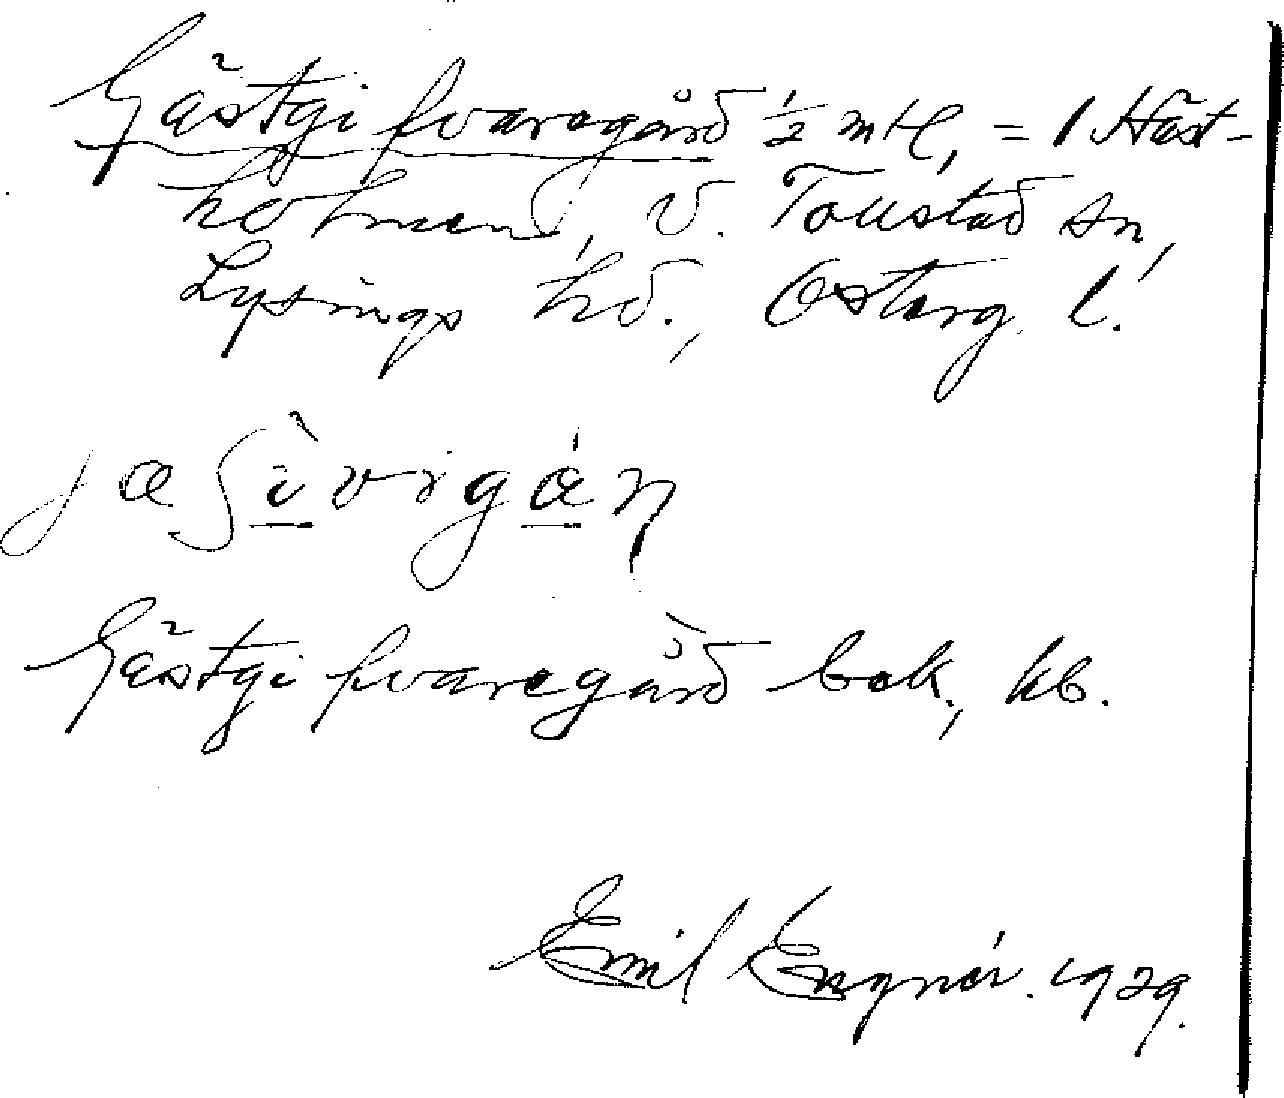 Gästgifvaregård ½ mtl, = 1 Häst-
holmen, V. Tollstad sn,
Lysings hd., Österg. l.
Gästgifvaregård bok, kb.
Emil Engnér. 1929.